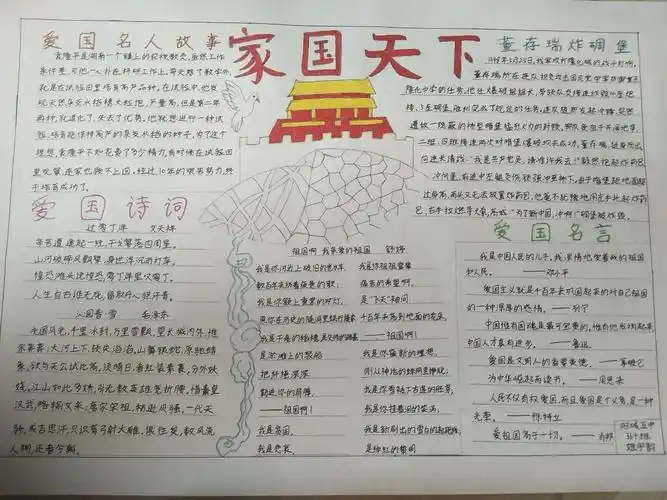 家国天下
爱国名人故事
袁隆平是湖南一个镇上的农校教员,虽然工作
条件差,可他一心扑在科研工作上,每天除了教学外,
就是在试验田里培育高产品种,在试验中,他发
现天然杂交水稻穗大粒饱,产量高,但是第二年
再种,就退化了,失去了优势,他就想进行一种试
验,培育能保持高产的杂交水稻的种子,为了这个
理想,袁隆平不知花费了多少精力,有时候在试验田
里吃紧,连家也顾不上回,经过10年的艰苦努力,终
于培育成功了。
爱国诗词
过零丁洋 文天祥
辛苦遭逢起一经,干戈寥落四周星。
山河破碎风飘絮,身世浮沉雨打萍。
惶恐滩头说惶恐,零丁洋里叹零丁。
人生自古谁无死,留取丹心照汗青。
沁园春·雪 毛泽东
北国风光,千里冰封,万里雪飘,望长城内外,惟
余莽莽;大河上下,顿失滔滔,山舞银蛇,原驰蜡
象,欲与天公试比高,须晴日,看红装素裹,分外妖
娆,江山如此多娇,引无数英雄竞折腰,惜秦皇
汉武,略输文采;唐宗宋祖,稍逊风骚,一代天
骄,成吉思汗,只识弯弓射大雕,俱往矣,数风流
人物,还看今朝。
祖国啊 我亲爱的祖国 舒婷
我是你河边上破旧的老水车
数百年来纺着疲惫的歌;
我是你额上熏黑的矿灯,
照你在历史的隧洞里蜗行摸索
我是干瘪的稻穗,是失修的路基
是淤滩上的驳船
把纤绳深深
勒进你的肩膊,
——祖国啊!
我是贫困,
我是悲哀,
我是你祖祖辈辈
痛苦的希望啊,
是“飞天”袖间
千百年来落到地面的花朵,
——祖国啊!
我是你簇新的理想,
刚从神话的蛛网里挣脱;
我是你雪被下古莲的胚芽,
我是你挂着泪的笑涡;
我是新刷出的雪白的起跑线,
是绯红的黎明
董存瑞炸碉堡
1948年5月25日,我军攻打隆化城的战斗打响,
过身高,两头又无法放置炸药包,他毫不犹豫地用左手托起炸药
包,右手拉燃导火索,高喊:“为了新中国,冲啊!”碉堡被炸毁。
爱国名言
我是中国人民的儿子,我深情地爱着我的祖国
和人民。 ——邓小平
爱国主义就是千百年来巩固起来的对自己祖国
的一种深厚的感情。 ——列宁
爱国是文明人的首要美德。 ——拿破仑
为中华崛起而读书。 ——周恩来
人民不仅有权爱国,而且爱国是个义务,是一种
光荣。 ——徐特立
爱祖国高于一切。 ——肖邦